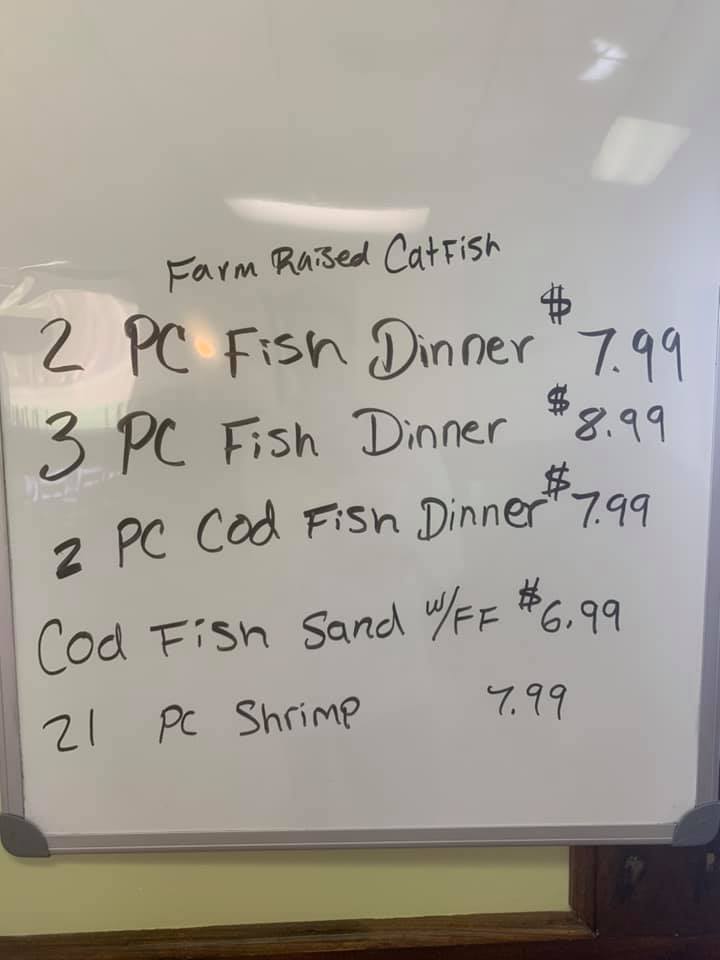 Farm Raised CatFish
2 PC Fish Dinner $7.99
3 PC Fish Dinner $8.99
2 PC Cod Fish Dinner $7.99
Cod Fish Sand w/FF $6.99
21 PC Shrimp 7.99